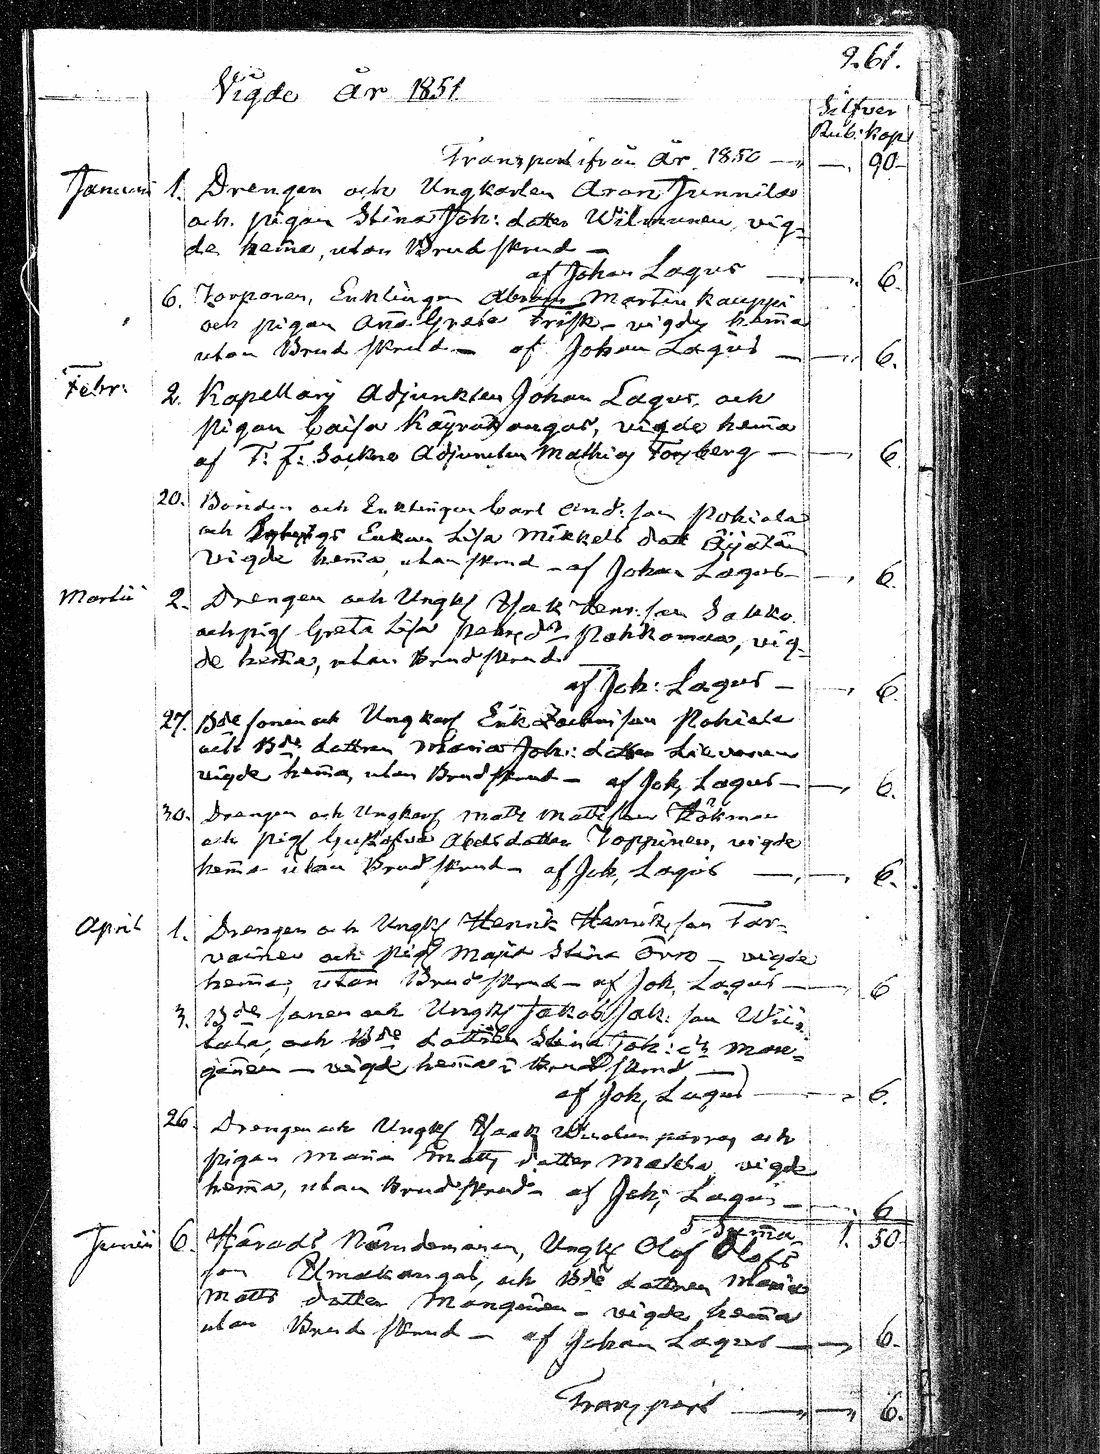 261.
Vigde År 1851
Silfver
Rub: Kop
Transport ifrån År 1850 — 90
Januari 1. Drengen och Ungkarlen Aron Junnila
och pigan Stina Joh: dotter Wilmunen, vig-
de hema, utan Brudskrud —
af Johan Lagus — 6.
6. Torparen, Enklingen Abram Martin Kauppi
och pigan Ana Greta Frisk — vigde hema
utan Brudskrud — af Johan Lagus — 6.
Febr: 2. Kapellans Adjunkten Johan Lagus och
pigan Caisa Käyräkangas, vigde hema
af T: f: Sockne Adjuncten Mathias Forsberg — 6.
20. Bonden och Enklingen Carl And: son Pohiola
och Enkan Lisa Mikkels dott
vigde hema, utan skrud — af Johan Lagus — 6.
Martii 2. Drengen och Ungk Isak Henr: son Sakko
och pig Greta Lisa Pehrs dr, vig-
de hema, utan Brudskrud
af Joh: Lagus — 6.
27. Bde sonen och Ungkar Erik son Pohiola
och Bde dottren Maria Joh: dotter
vigde hema, utan Brudskrud — af Joh, Lagus — 6.
30. Drengen och Ungkar Matts Mattsson Hökman
och pig Gustafva Abels dotter Toppinen, vigde
hema utan Brudskrud — af Joh, Lagus — 6.
April 1. Drengen och Ungk Henrik Henrik son Tar-
vainen och pig Maja Stina Övro — vigde
hema, utan Brudskrud — af Joh, Lagus — 6
3. Bde sonen och Ungk Jakob Jak: son Wiis
tala, och Bde dottren Stina Joh: dr Mon-
ginen — vigde hema i Brudskrud —
af Joh, Lagus — 6.
26. Drengen och Ungk Isak och
pigan Maria Matts dotter Matila, vigde
hema, utan Brudskrud — af Joh, Lagus — 6
Suma 1. 50
Junii 6. Härads Nämdemanen, Ungk Olof Olofs
son Ylmakangas, och Bde dottren Maria
Matts dotter Monginen — vigde hema
utan Brudskrud — af Johan Lagus — 6.
Transport — 6.